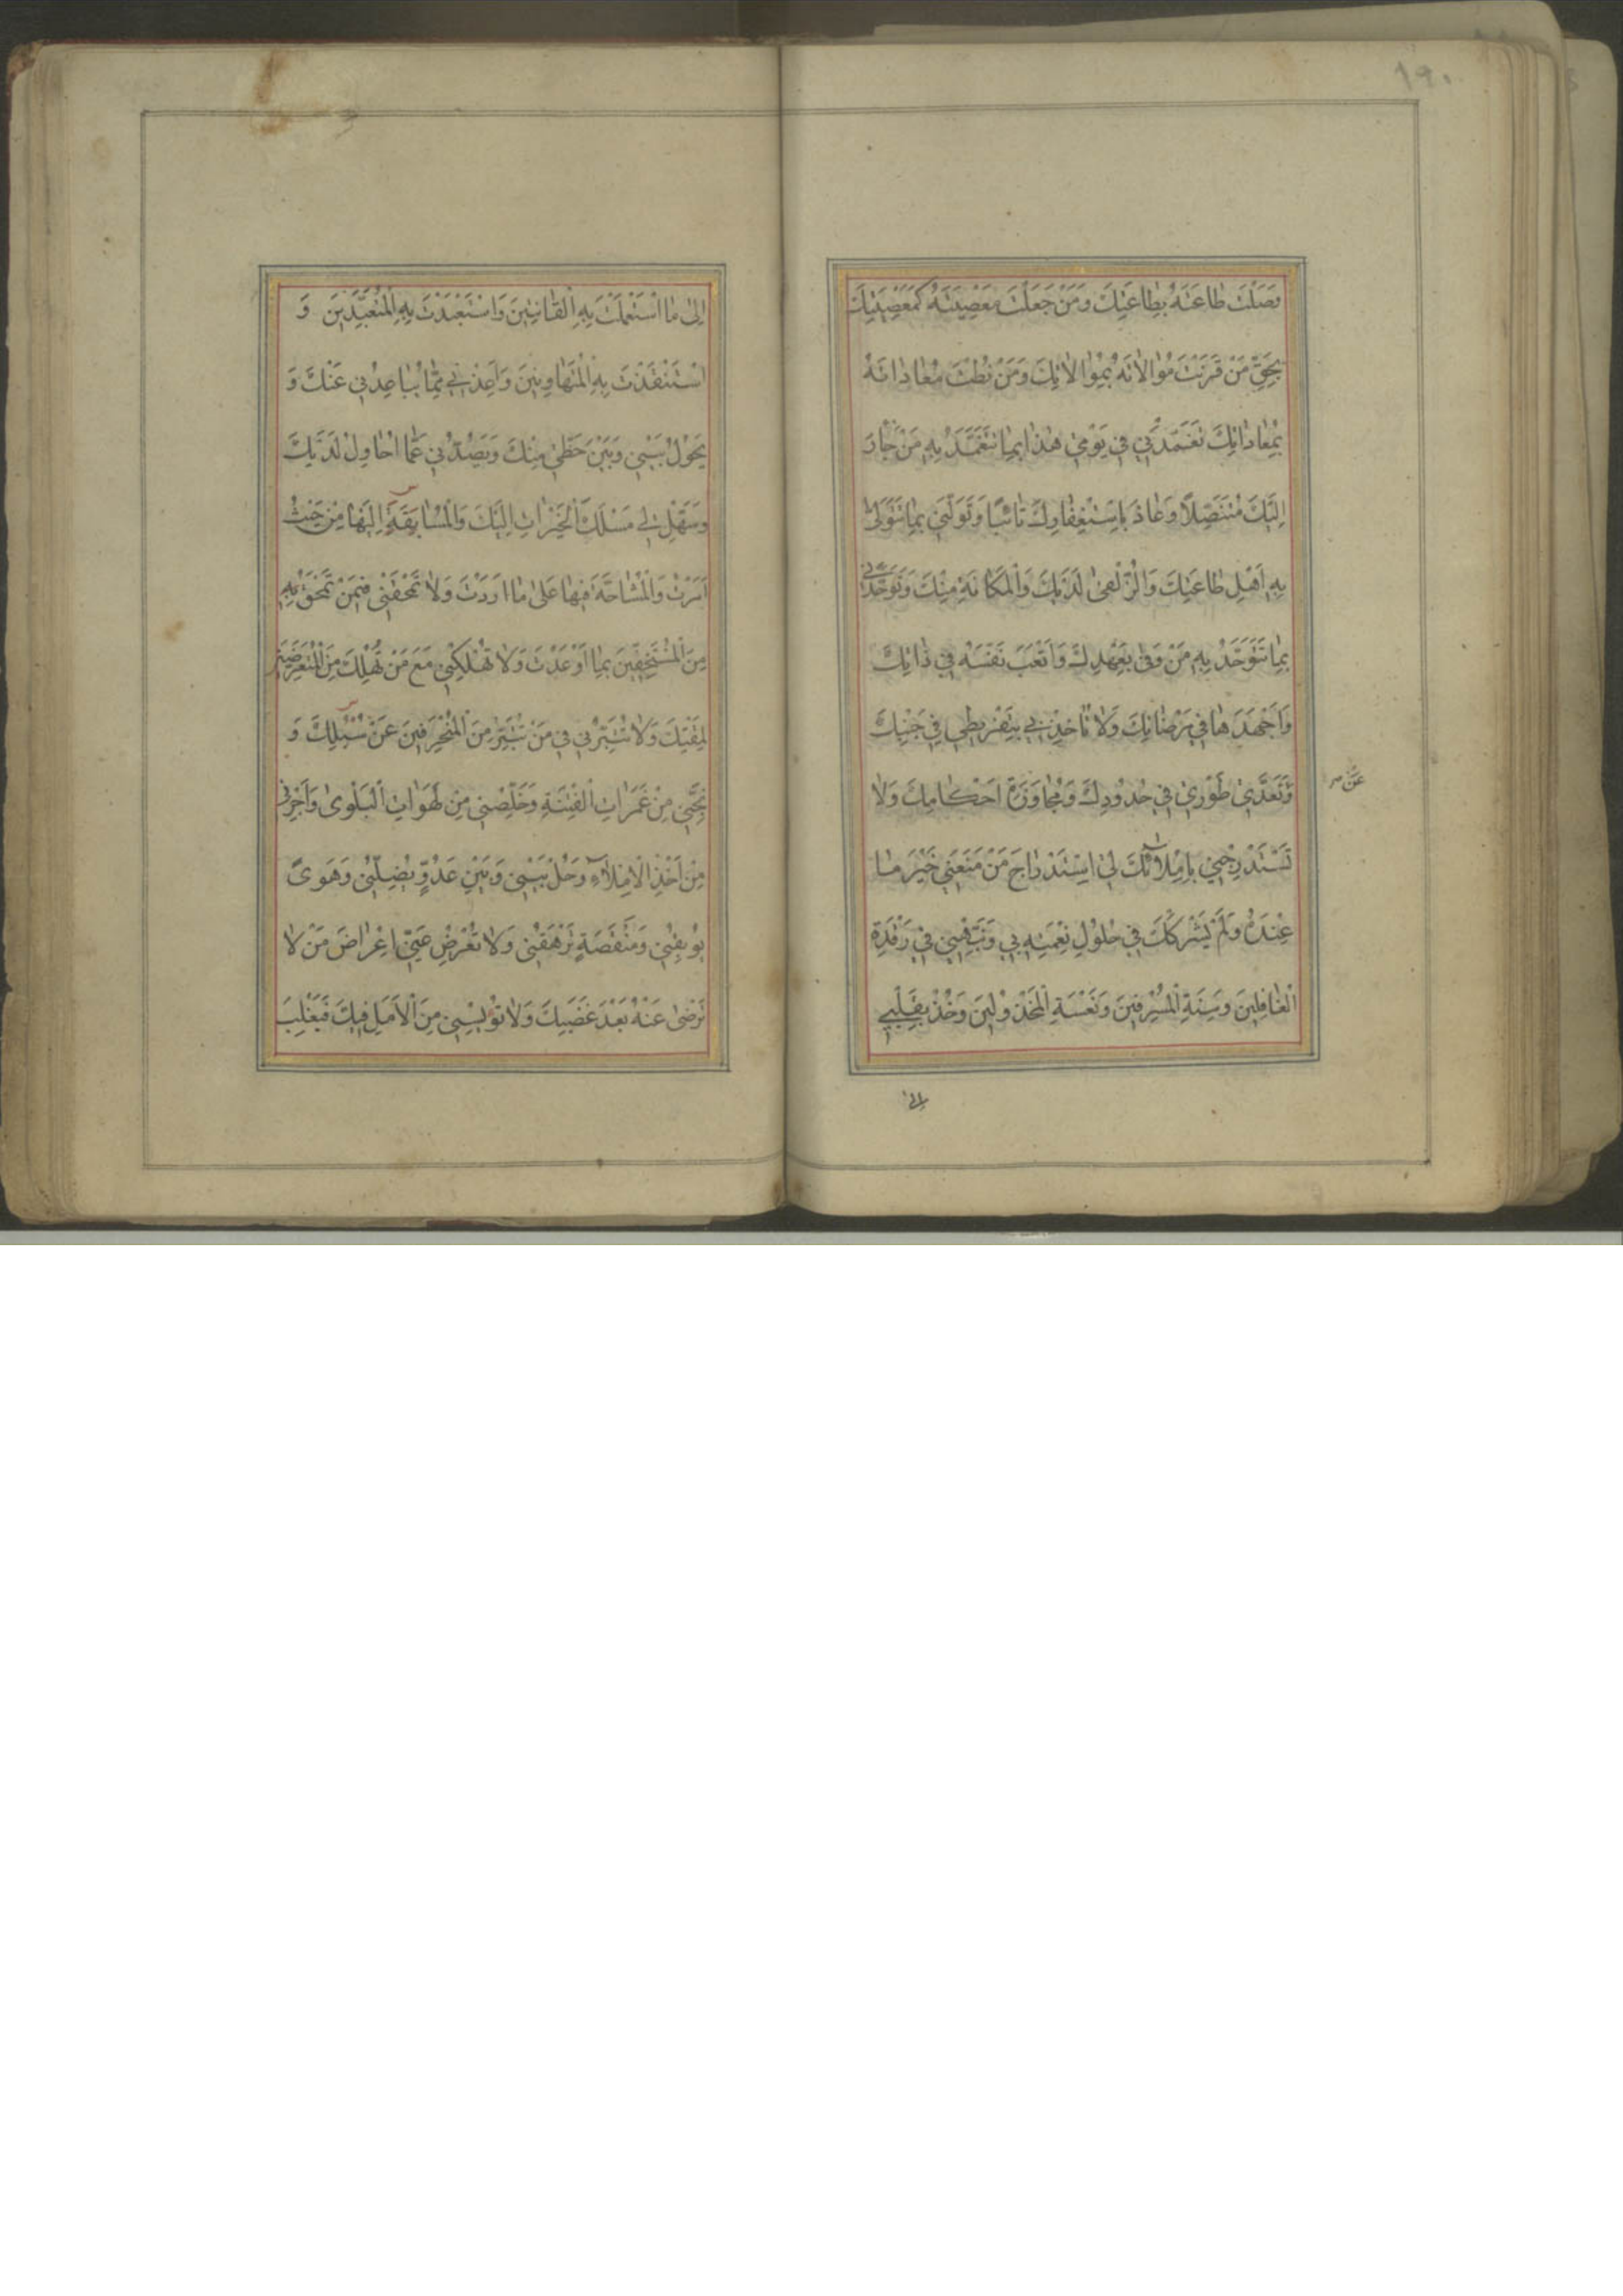 ١٩٠
وَصَلْتَ طَاعَتَهُ بِطَاعَتِكَ وَمَنْ جَعَلْتَ مَعْصِيَتَهُ كَمَعْصِيَتِكَ
بِحَقِّ مَنْ قَرَنْتَ مُوَالَاتَهُ بِمُوَالَاتِكَ وَمَنْ نُطْتَ مُعَادَاتَهُ
بِمُعَادَاتِكَ تَغَمَّدْنِي فِي يَوْمِي هٰذَا بِمَا تَتَغَمَّدُ بِهِ مَنْ جَارَ
اِلَيْكَ مُتَنَصِّلًا وَعَاذَ بِاسْتِغْفَارِكَ تَائِبًا وَتَوَلَّنِي بِمَا تَتَوَلّٰى
بِهِ اَهْلَ طَاعَتِكَ وَالزُّلْفٰى لَدَيْكَ وَالْمَكَانَةِ مِنْكَ وَتَوَحَّدْنِي
بِمَا تَتَوَحَّدُ بِهِ مَنْ وَفٰى بِعَهْدِكَ وَاَتْعَبَ نَفْسَهُ فِي ذَاتِكَ
وَاَجْهَدَهَا فِي مَرْضَاتِكَ وَلَا تُؤَاخِذْنِي بِتَفْرِيطِي فِي جَنْبِكَ
وَتَعَدِّي طَوْرِي فِي حُدُودِكَ وَمُجَاوَزَةِ اَحْكَامِكَ وَلَا
تَسْتَدْرِجْنِي بِاِمْلَائِكَ لِي اسْتِدْرَاجَ مَنْ مَنَعَنِي خَيْرَ مَا
عِنْدَهُ وَلَمْ يَشْرَكْكَ فِي حُلُولِ نِعْمَتِهِ بِي وَنَبِّهْنِي فِي رَقْدَةِ
الْغَافِلِينَ وَسِنَةِ الْمُسْرِفِينَ وَنَعْسَةِ الْمَخْذُولِينَ وَخُذْ بِقَلْبِي
اِلٰى
اِلٰى مَا اسْتَعْمَلْتَ بِهِ الْقَانِتِينَ وَاسْتَعْبَدْتَ بِهِ الْمُتَعَبِّدِينَ وَ
اسْتَنْقَذْتَ بِهِ الْمُتَهَاوِنِينَ وَاَعِذْنِي مِمَّا يُبَاعِدُنِي عَنْكَ وَ
يَحُولُ بَيْنِي وَبَيْنَ حَظِّي مِنْكَ وَيَصُدُّنِي عَمَّا اُحَاوِلُ لَدَيْكَ
وَسَهِّلْ لِي مَسْلَكَ الْخَيْرَاتِ اِلَيْكَ وَالْمُسَابَقَةَ اِلَيْهَا مِنْ حَيْثُ
اَمَرْتَ وَالْمُشَاحَّةَ فِيهَا عَلٰى مَا اَرَدْتَ وَلَا تَمْحَقْنِي فِيمَنْ تَمْحَقُ بِهِ
مِنَ الْمُسْتَخِفِّينَ بِمَا اَوْعَدْتَ وَلَا تُهْلِكْنِي مَعَ مَنْ تُهْلِكُ مِنَ الْمُتَعَرِّضِينَ
لِمَقْتِكَ وَلَا تُتَبِّرْنِي فِي مَنْ تُتَبِّرُ مِنَ الْمُنْحَرِفِينَ عَنْ سُبُلِكَ وَ
نَجِّنِي مِنْ غَمَرَاتِ الْفِتْنَةِ وَخَلِّصْنِي مِنْ لَهَوَاتِ الْبَلْوٰى وَاَجِرْنِي
مِنْ اَخْذِ الْاِمْلَاءِ وَحُلْ بَيْنِي وَبَيْنَ عَدُوٍّ يُضِلُّنِي وَهَوًى
يُوبِقُنِي وَمَنْقَصَةٍ تَرْهَقُنِي وَلَا تُعْرِضْ عَنِّي اِعْرَاضَ مَنْ لَا
تَرْضٰى عَنْهُ بَعْدَ غَضَبِكَ وَلَا تُؤْيِسْنِي مِنَ الْاَمَلِ فِيكَ فَيَغْلِبَ